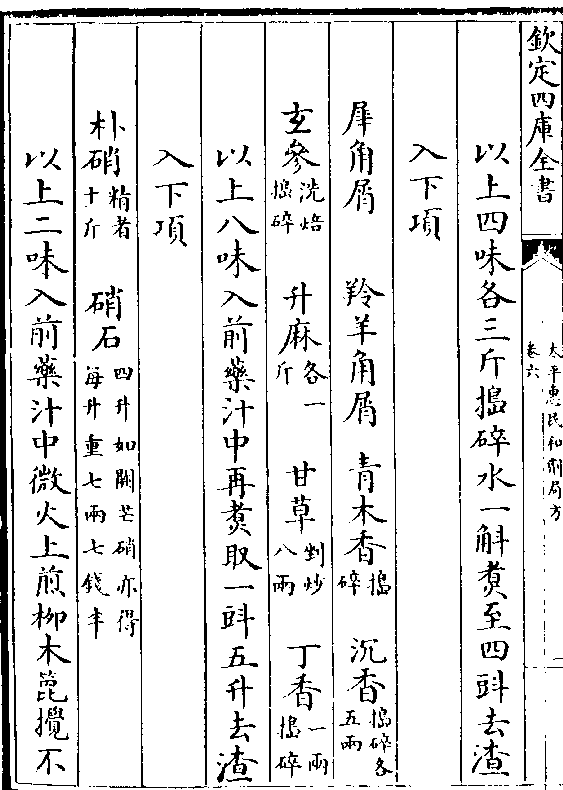 欽定四庫全書
太平惠民和劑局方
卷六
以上四味各三斤搗碎水一斛煑至四㪷去渣
入下項
犀角屑 羚羊角屑 青木香搗碎 沉香搗碎各五兩
玄參洗焙搗碎 升麻各一斤 甘草剉炒八兩 丁香一兩搗碎
以上八味入前藥汁中再煑取一㪷五升去渣
入下項
朴硝精者十斤 硝石四升如闕芒硝亦得每升重七兩七錢半
以上二味入前藥汁中微火上煎柳木箆攪不